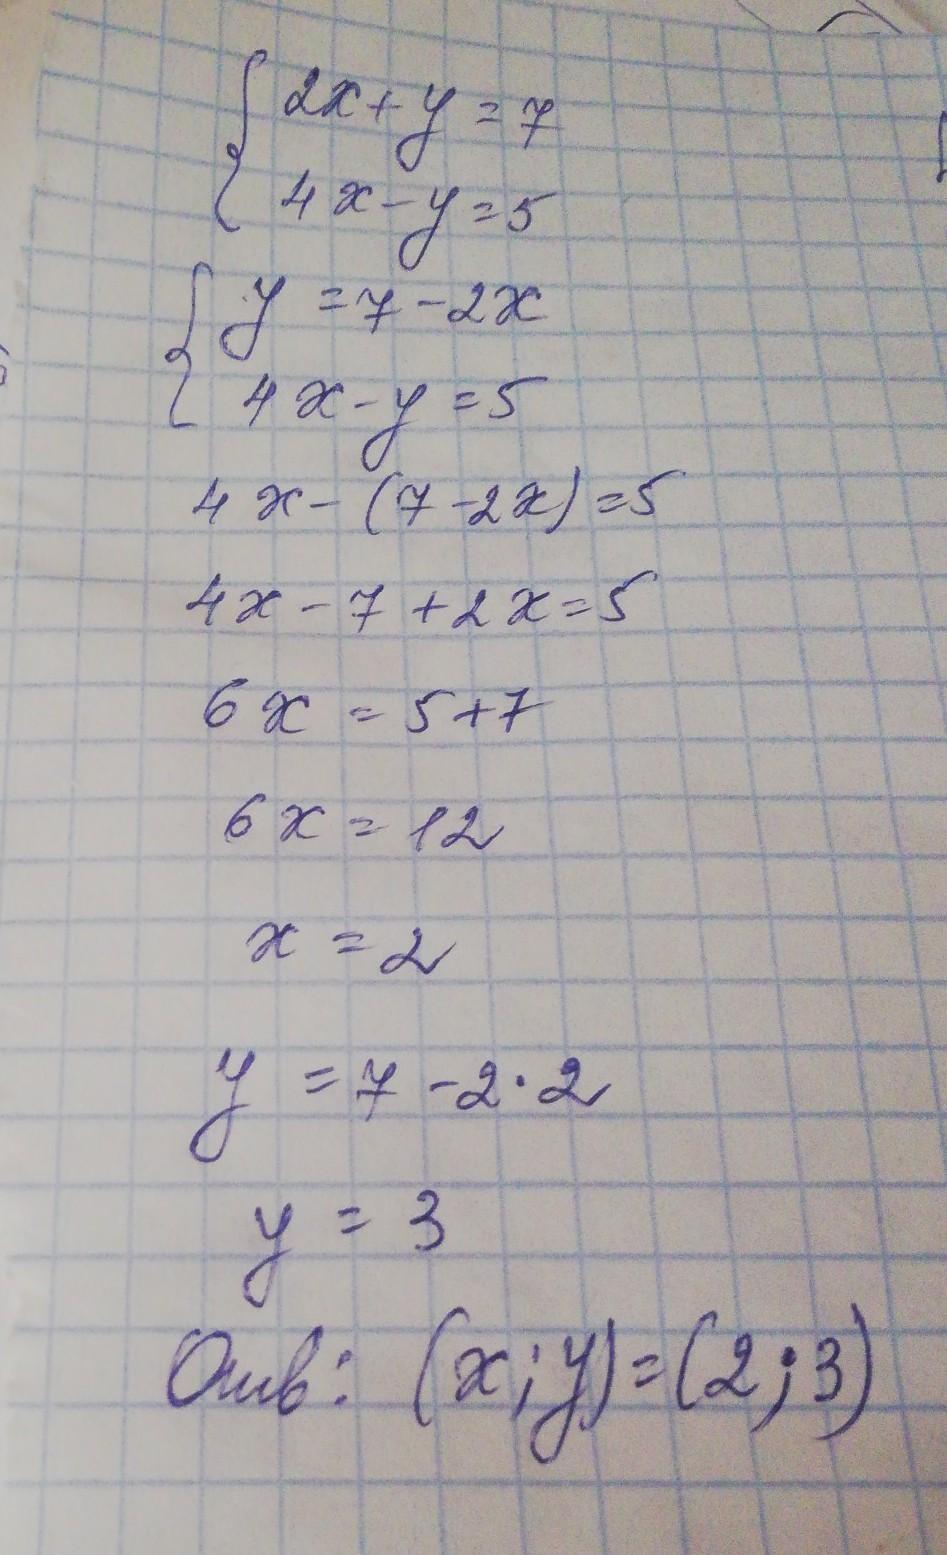 { 2x + y = 7
4x - y = 5
{ y = 7 - 2x
4x - y = 5
4x - (7 - 2x) = 5
4x - 7 + 2x = 5
6x = 5 + 7
6x = 12
x = 2
y = 7 - 2 · 2
y = 3
Отв: (x; y) = (2; 3)